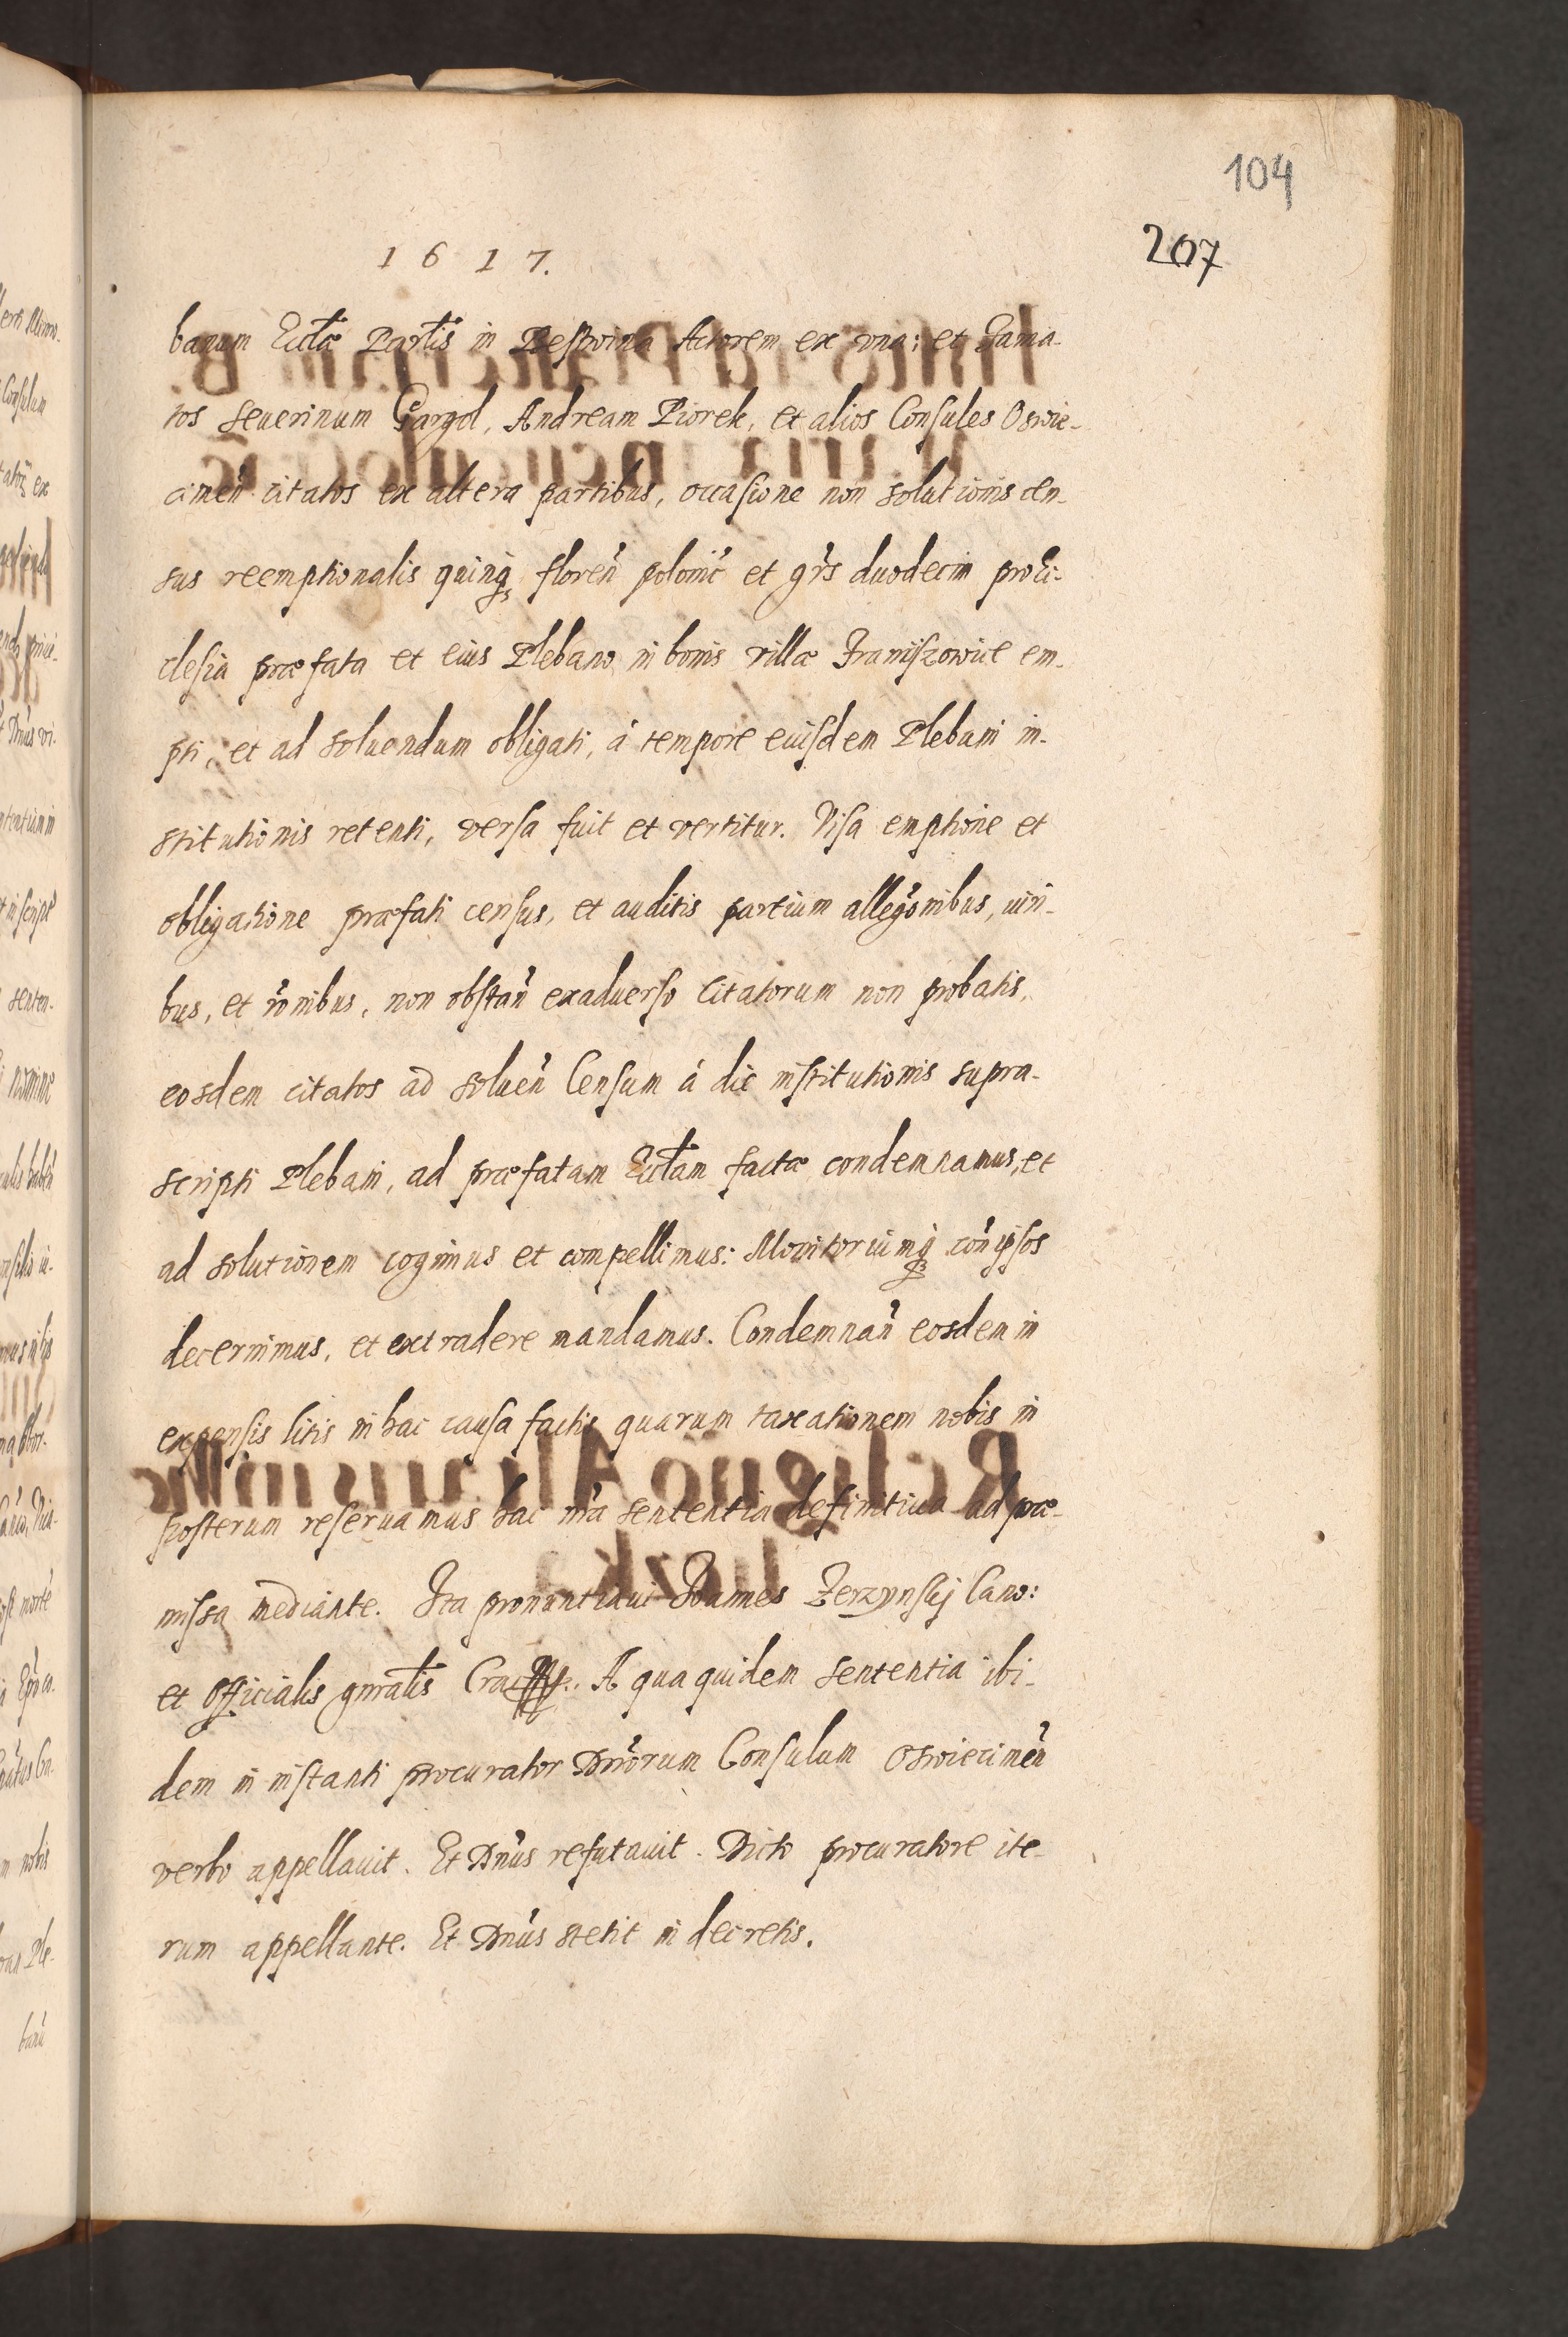 104
207
1617.
banum Eccłæ Parłis in Bestwina Actorem ex vna; et Fama-
tos Seuerinum Gargol, Andream Piorek, et alios Consules Oswie-
cimeñ citatos ex altera partibus, occasione non solutionis cen-
sus reemptionalis quinq floreñ poloñ et gr̃s duodecim pro Ec-
clesia præfata et eius Plebano in bonis villæ Franiszowice em-
pti, et ad soluendum obligati, á tempore eiusdem Plebani in-
stitutionis retenti, versa fuit et vertitur. Visa emptione et
obligatione præfati census, et auditis partium allegõnibus, iuri-
bus, et rõnibus, non obstañ exaduerso Citatorum non probatis,
eosdem citatos ad solueñ Censum á die institutionis supra-
scripti Plebani, ad præfatam Eccłam factæ condemnamus, et
ad solutionem cogimus et compellimus: Monitoriumq coñ ipsos
decernimus, et extradere mandamus. Condemnañ eosdem in
expensis litis in hac causa factis quarum taxationem nobis in
posterum reseruamus hac nr̃a sententia definitiua ad præ-
missa mediante. Ita pronuntiaui Joannes Zerzynskj Cano:
et Officialis gnrałis Crac. A qua quidem sententia ibi-
dem in instanti procurator Dnõrum Consulum Oswiecimeñ
verbo appellauit. Et Dñus refutauit. Dicto procuratore ite-
rum appellante. Et Dñus stetit in decretis.